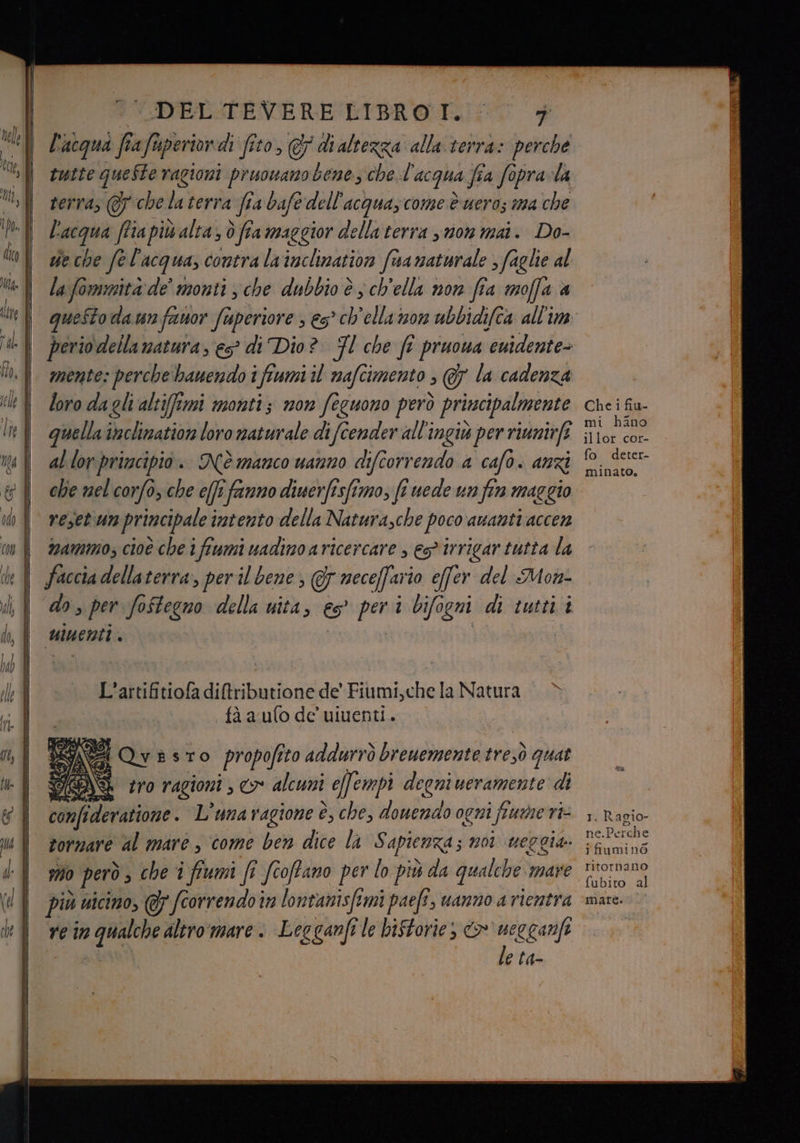 DEL TEVERE LIBRO I. 7
l'acqua ſia ſuperior di ſito, & di altezza alla terra: perche
tutte queſte ragioni pruouano bene, che l'acqua ſia ſopra la
terra, & che la terra ſia baſe dell'acqua, come è uero; ma che
l'acqua ſtia più alta, ò ſia maggior della terra, non mai. Do-
ue che ſe l'acqua, contra la inclination ſua naturale, ſaglie al
la ſommita de' monti, che dubbio è, ch'ella non ſia moſſa a
queſto da un fauor ſuperiore, & ch'ella non ubbidiſca all'im
perio della natura, & di Dio? Il che ſi pruoua euidente-
mente: perche hauendo i fiumi il naſcimento, & la cadenza
loro da gli altiſſimi monti; non ſeguono però principalmente
quella inclination loro naturale diſcender all'ingiù per riunirſi
al lor principio. Nè manco uanno diſcorrendo a caſo. anzi
che nel corſo, che eſſi fanno diuerſisſimo, ſi uede un fin maggio
re, et un principale intento della Natura, che poco auanti accen
nammo, cioè che i fiumi uadino a ricercare, & irrigar tutta la
faccia della terra, per il bene, & neceſſario eſſer del Mon-
do, per ſoſtegno della uita, & per i biſogni di tutti i
uiuenti.
Che i fiu-
mi hāno
il lor cor-
ſo deter-
minato.
L'artifitioſa diſtributione de' Fiumi, che la Natura
fà a uſo de' uiuenti.
Qvesto propoſito addurrò breuemente tre, ò quat
tro ragioni, & alcuni eſſempi degni ueramente di
conſideratione. L'una ragione è, che, douendo ogni fiume ri-
tornare al mare, come ben dice la Sapienza; noi ueggia-
mo però, che i fiumi ſi ſcoſtano per lo più da qualche mare
più uicino, & ſcorrendo in lontanisſimi paeſi, uanno a rientra
re in qualche altro mare. Legganſi le hiſtorie, & uegganſi
le ta-
1. Ragio-
ne. Perche
i fiumi nō
ritornano
ſubito al
mare.